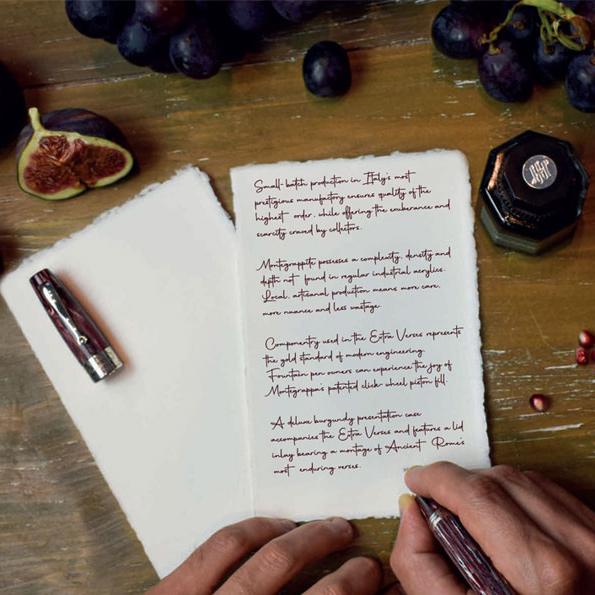 Small-batch production in Italy's most
prestigious manufactory ensures quality of the
highest order, while offering the exuberance and
scarcity craved by collectors.
Montegrappite possesses a complexity, density and
depth not found in regular industrial acrylics.
Local, artisanal production means more care,
more nuance and less wastage.
Componentry used in the Extra Verses represents
the gold standard of modern engineering.
Fountain pen owners can experience the joy of
Montegrappa's patented click-wheel piston fill.
A deluxe burgundy presentation case
accompanies the Extra Verses and features a lid
inlay bearing a montage of Ancient Rome's
most enduring verses.